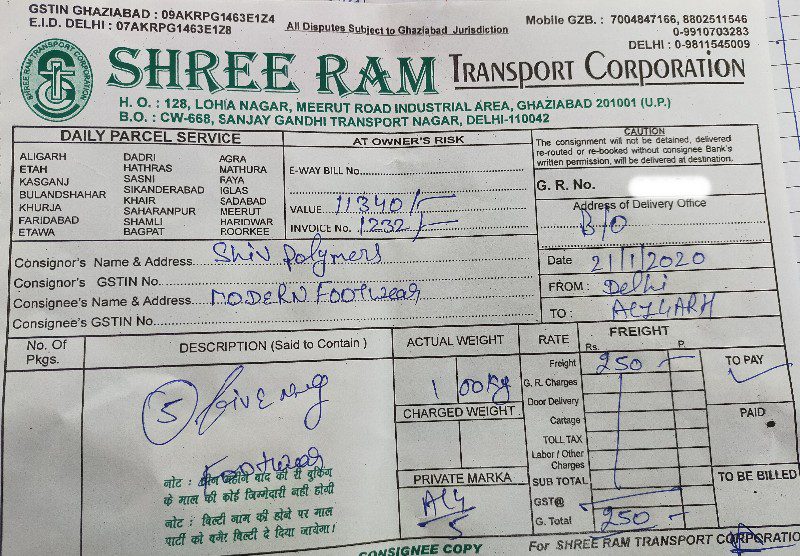 GSTIN GHAZIABAD : 09AKRPG1463E1Z4
E.I.D. DELHI : 07AKRPG1463E1Z8
All Disputes Subject to Ghaziabad Jurisdiction
Mobile GZB. : 7004847166, 8802511546
0-9910703283
DELHI : 0-9811545009
SHREE RAM TRANSPORT CORPORATION
SHREE RAM TRANSPORT CORPORATION
H. O. : 128, LOHIA NAGAR, MEERUT ROAD INDUSTRIAL AREA, GHAZIABAD 201001 (U.P.)
B.O. : CW-668, SANJAY GANDHI TRANSPORT NAGAR, DELHI-110042
DAILY PARCEL SERVICE
ALIGARH DADRI AGRA
ETAH HATHRAS MATHURA
KASGANJ SASNI RAYA
BULANDSHAHAR SIKANDERABAD IGLAS
KHURJA KHAIR SADABAD
FARIDABAD SAHARANPUR MEERUT
ETAWA SHAMLI HARIDWAR
BAGPAT ROORKEE
AT OWNER'S RISK
E-WAY BILL No.
VALUE 11340/-
INVOICE No. 1232/-
CAUTION
The consignment will not be detained, delivered
re-routed or re-booked without consignee Bank's
written permission, will be delivered at destination.
G. R. No.
Address of Delivery Office
B/O
Consignor's Name & Address Shiv Polymers
Consignor's GSTIN No.
Consignee's Name & Address MODERN FOOTWEAR
Consignee's GSTIN No.
Date 21/1/2020
FROM : Delhi
TO : ALIGARH
No. Of
Pkgs.
DESCRIPTION (Said to Contain )
5
FOOTWEAR
नोट : तीन महीने बाद की री बुकिंग
के माल की कोई जिम्मेदारी नही होगी
नोट : बिल्टी नाम की होने पर माल
पार्टी को बगैर बिल्टी दे दिया जायेगा।
ACTUAL WEIGHT
100Kg
CHARGED WEIGHT
PRIVATE MARKA
ALG
5
RATE
FREIGHT
Rs. P.
Freight 250 -
G. R. Charges
Door Delivery
Cartage
TOLL TAX
Labor / Other
Charges
SUB TOTAL
GST@
G. Total 250 -
TO PAY
PAID
TO BE BILLED
CONSIGNEE COPY
For SHREE RAM TRANSPORT CORPORATIO